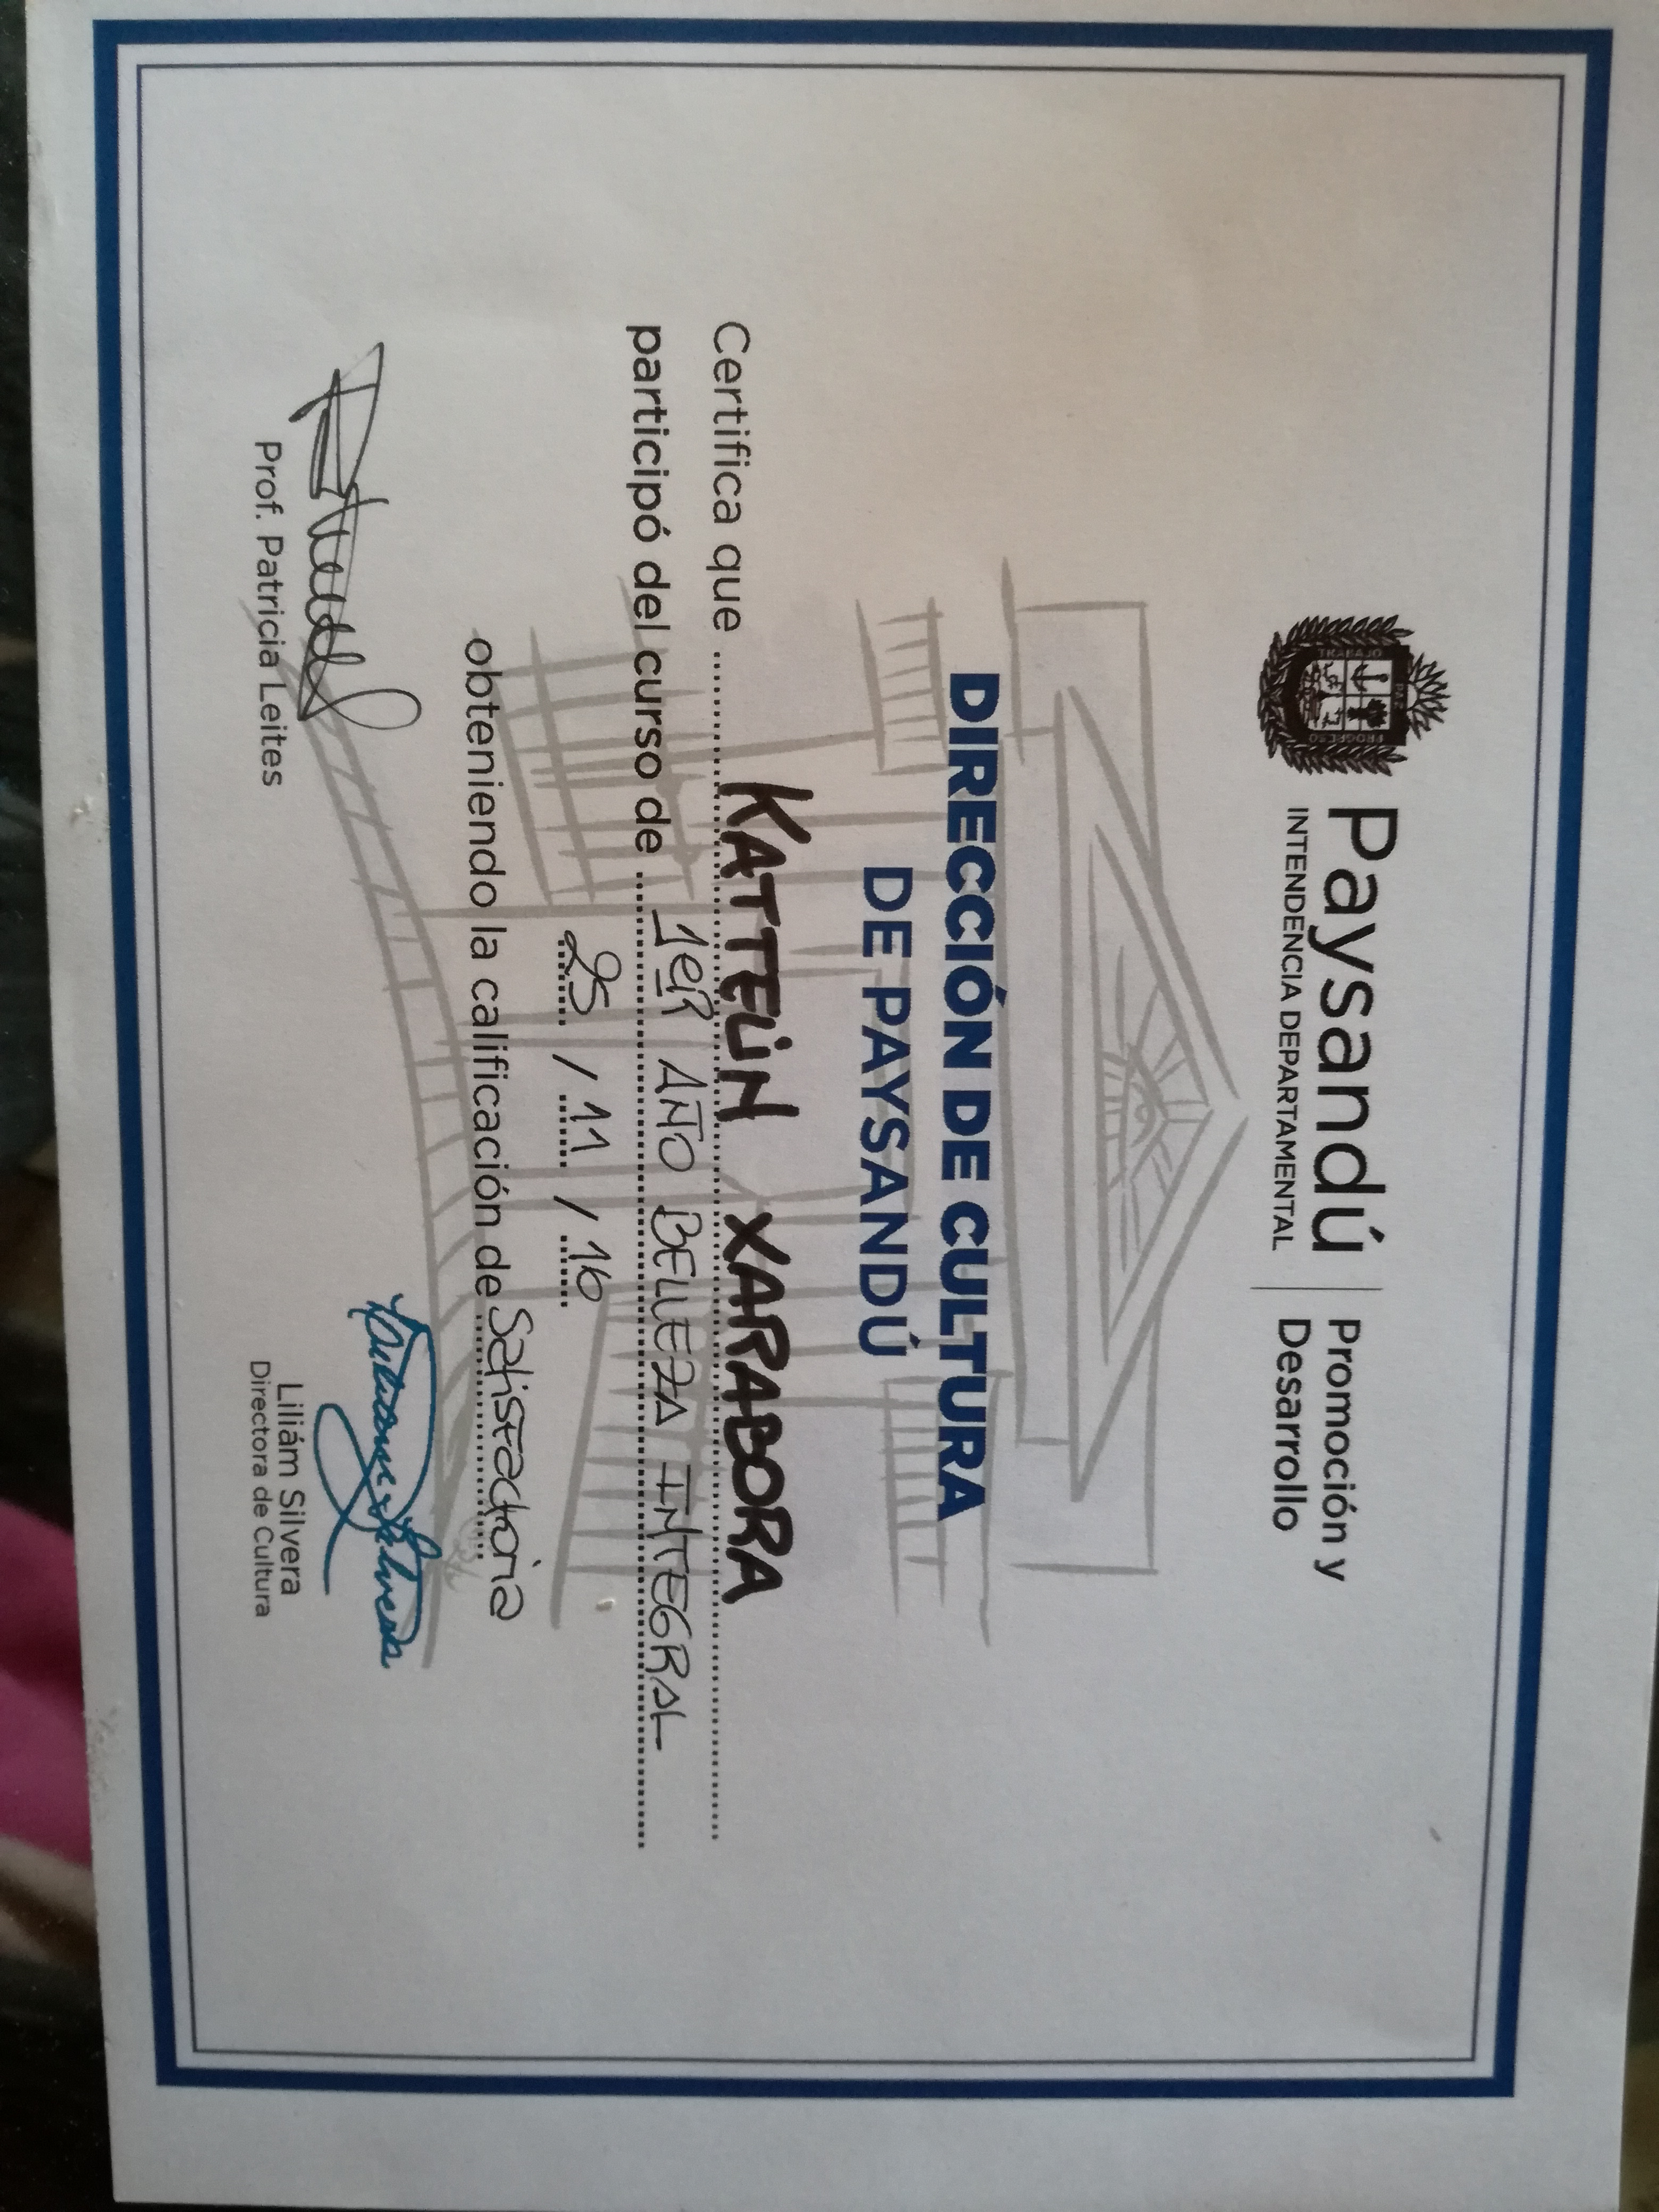 TRABAJO
PAZ
PROGRESO
Paysandú
INTENDENCIA DEPARTAMENTAL
Promoción y
Desarrollo
DIRECCIÓN DE CULTURA
DE PAYSANDÚ
Certifica que KATTELIN XARABORA
participó del curso de 1ER AÑO BELLEZA INTEGRAL
25 / 11 / 16
obteniendo la calificación de Satisfactoria
Prof. Patricia Leites
Liliám Silvera
Directora de Cultura